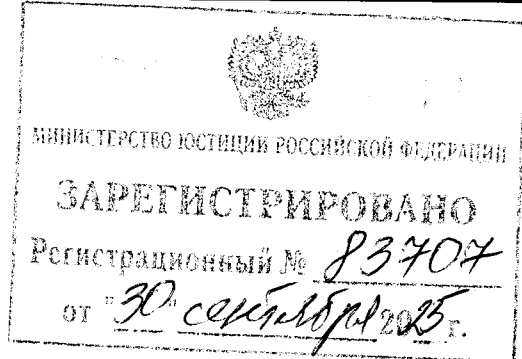 МИНИСТЕРСТВО ЮСТИЦИИ РОССИЙСКОЙ ФЕДЕРАЦИИ
ЗАРЕГИСТРИРОВАНО
Регистрационный № 83707
от "30" сентября 2025 г.